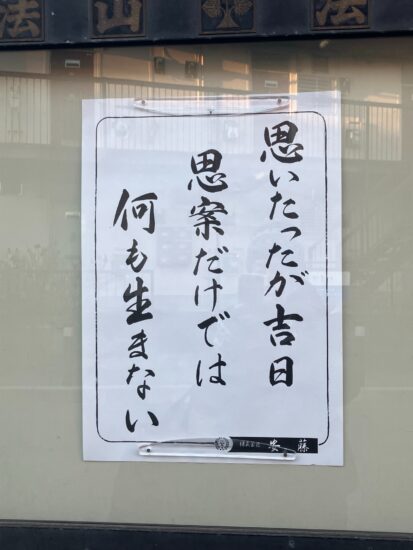 法山 法
思いたったが吉日
思案だけでは
何も生まない
株式会社 安藤